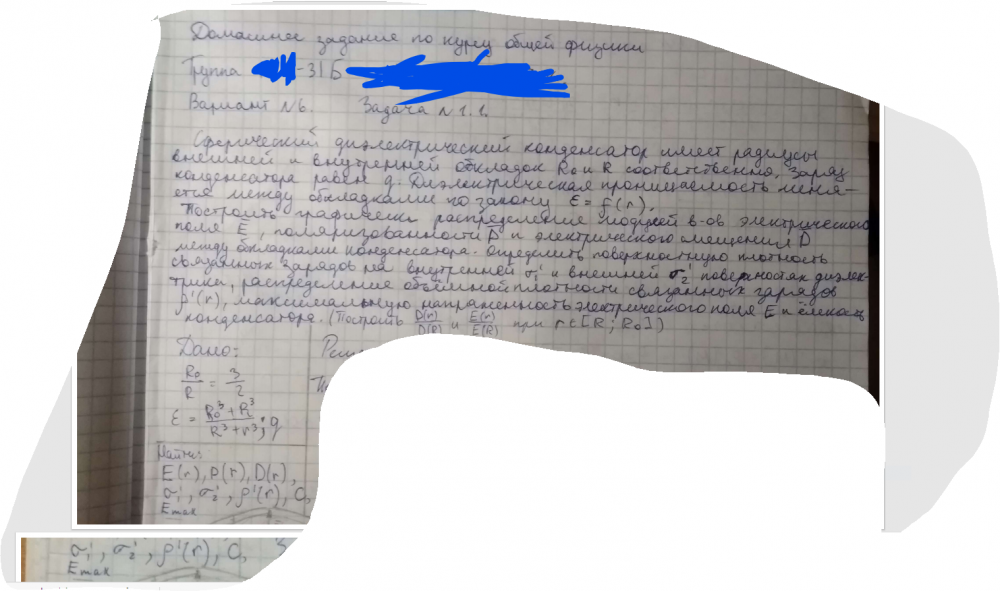 Домашнее задание по курсу общей физики
Группа -31Б
Вариант №6. Задача №1.1.
Сферический диэлектрический конденсатор имеет радиусы
внешней и внутренней обкладок R₀ и R соответственно, заряд
конденсатора равен q. Диэлектрическая проницаемость меня-
ется между обкладками по закону ε = f(r).
Построить графически распределение модулей в-ов электрического
поля E, поляризованности P и электрического смещения D
между обкладками конденсатора. Определить поверхностную плотность
связанных зарядов на внутренней σ₁' и внешней σ₂' поверхностях диэлек-
трика, распределение объёмной плотности связанных зарядов
ρ'(r), максимальную напряженность электрического поля E и ёмкость
конденсатора. (Построить D(r)/D(R) и E(r)/E(R) при r∈[R; R₀])
Дано:
R₀/R = 3/2
ε = (R₀³+R³)/(R³+r³); q
Найти:
E(r), P(r), D(r),
σ₁', σ₂', ρ'(r), C,
Emax
σ₁', σ₂', ρ'(r), C,
Emax